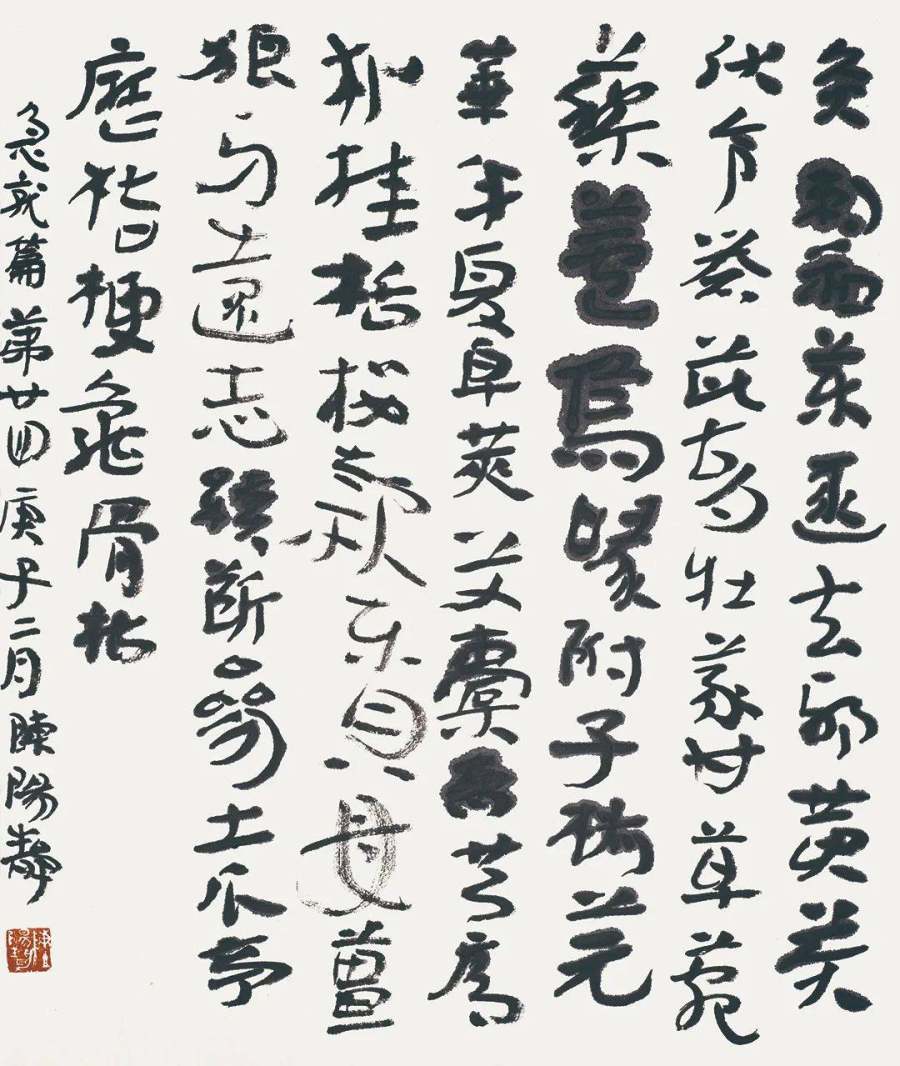 灸刺和藥逐去邪黃芩
伏令礜茈胡牡蒙甘草菀
藜蘆烏喙附子椒芫
華半夏皁莢艾橐吾芎厚
朴桂栝樓款東貝母薑
狼牙遠志續斷參土瓜亭
歷桔梗龜骨枯
急就篇第廿四 庚子二月 陳陽靜